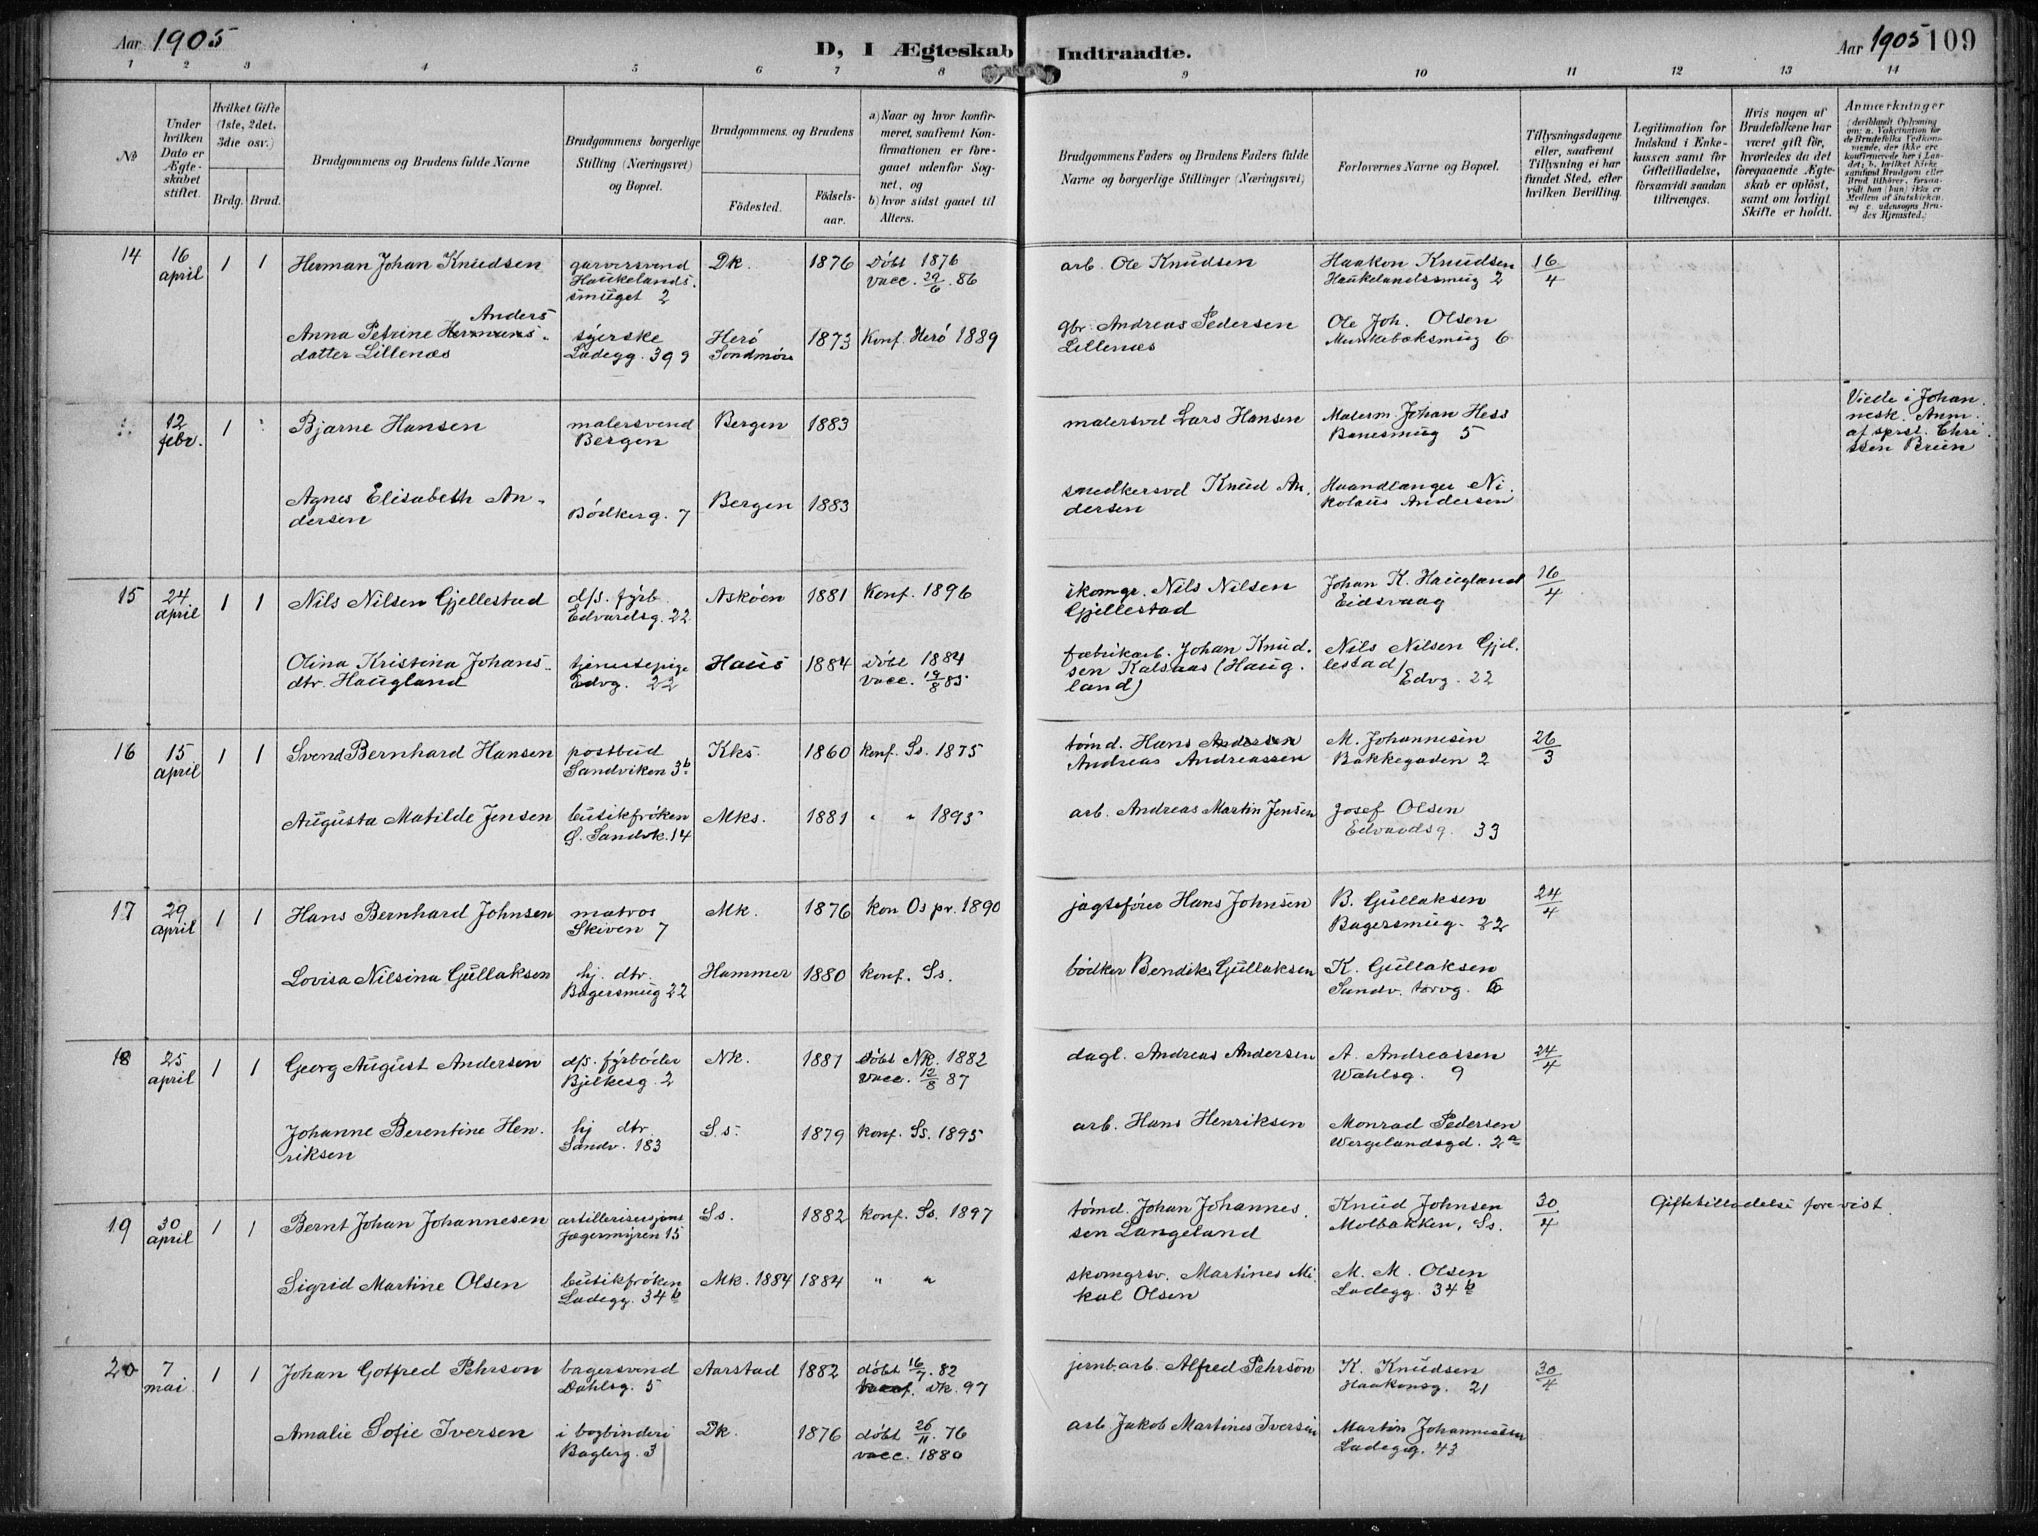 Aar 1905
D, I Ægteskab Indtraadte.
Aar 1905 109
1 2 3 4 5 6 7 8 9 10 11 12 13 14
No
Under hvilken Dato er Ægteskabet stiftet.
Hvilket Gifte (1ste, 2det, 3die osv.)
Brdg. Brud.
Brudgommens og Brudens fulde Navne
Brudgommens borgerlige Stilling (Næringsvei) og Bopæl.
Brudgommens og Brudens
Födested.
Födselsaar.
a) Naar og hvor konfirmeret, saafremt Konfirmationen er foregaaet udenfor Sognet, og
b) hvor sidst gaaet til Alters.
Brudgommens Faders og Brudens Faders fulde Navne og borgerlige Stillinger (Næringsvei)
Forlovernes Navne og Bopæl.
Tillysningsdagene eller, saafremt Tillysning ei har fundet Sted, efter hvilken Bevilling.
Legitimation for Indskud i Enkekassen samt for Giftetilladelse, forsaavidt saadan tiltrænges.
Hvis nogen af Brudefolkene har været gift før, hvorledes da det foregaaende Ægteskab er oplöst, samt om lovligt Skifte er holdt.
Anmærkninger
(deriblandt Oplysning om: a. Vakcination for de Brudefolks Vedkommende, der ikke ere konfirmerede her i Landet; b. hvilket Kirkesamfund Brudgom eller Brud tilhörer, forsaavidt han (hun) ikke er Medlem af Statskirken, og c. udensogns Brudes Hjemsted.)
14 16 april 1 1 Herman Johan Knudsen garversvend Haukelandssmuget 2 Dk. 1876 Döbt 1876 Vacc. 29/6 . 86 arb. Ole Knudsen Haakon Knudsen Haukelandssmug 2 16/4
Anna Petrine Hermans Anders datter Lillenæs syerske Ladegg. 39 Herö Söndmör 1873 Konf. Herö 1889 gbr. Andreas Pedersen Lillenæs Ole Joh. Olsen Munkebæksmug 6
12 febr. 1 Bjarne Hansen malersvend Bergen Bergen 1883 malersvd Lars Hansen Malerm. Johan Hess Banesmug 5 Viede i Johannesk. Anm. af sprst. Chrissen Brun
Agnes Elisabeth Andersen Bödkerg. 7 Bergen 1883 snedkersvd Knud Andersen Haandlanger Nikolaus Andersen
15 24 april 1 1 Nils Nilsen Gjellestad d/s. fyrb. Edvardsg. 22 Asköen 1881 Konf. 1896 skomgr. Nils Nilsen Gjellestad Johan K. Haugland Eidsvaag 16/4
Olina Kristina Johansdtr. Haugland tjenestepige Edvg. 22 Haus 1884 Döbt 1884 Vacc. 19/8 85 fabrikarb. Johan Knudsen Kalsaas (Haugland) Nils Nilsen Gjellestad, Edvg. 22
16 15 april 1 1 Svend Bernhard Hansen postbud Sandviken 3b Kks. 1860 konf. Ss. 1875 tömd. Hans Andersen Andreas Andreassen M. Johannesen Bakkegaden 2 26/3
Augusta Matilde Jensen butikfröken Ø. Sandvk. 14 Mks. 1881 " " 1895 arb. Andreas Martin Jensen Josef Olsen Edvardsg. 33
17 29 april 1 1 Hans Bernhard Johnsen matros Skiven 7 Mk. 1876 kon Os pr. 1890 jagtefører Hans Johnsen B. Gullaksen Bagersmug. 22 24/4
Lovisa Nilsina Gullaksen hj. dtr. Bagersmug 22 Hammer 1880 konf. Ss. bödker Bendiks Gullaksen K. Gullaksen Sandv. torvg. 6
18 25 april 1 1 Georg August Andersen d/s. fyrböder Bjelkesg. 2 Nk. 1881 Döbt Nk. 1882 Vacc. 12/8 87 dagl. Andreas Andersen A. Andreassen Wahlsg. 9 24/4
Johanne Berentine Henriksen hj dtr. Sandv. 183 S.s. 1879 konf. Ss. 1895 arb. Hans Henriksen Monrad Pedersen Wergelandsgd. 2a
19 30 april 1 1 Bernt Johan Johannesen artillerisersjant Jægermyren 15 Ss. 1882 konf. Ss. 1897 tömd. Johan Johannessen Langeland Knud Johnsen Molbakken, Ss. 30/4 Giftetilladelse forevist.
Sigrid Martine Olsen butikfröken Ladegg. 34b Mk. 1884 1884 " " skomgrsv. Martines Mikal Olsen M. M. Olsen Ladegg. 34b
20 7 mai 1 1 Johan Gotfred Pehrson bagersvend Dahlsg. 5 Aarstad 1882 döbt 16/7. 82 konf. Dk. 97 jernb.arb. Alfred Pehrson K. Knudsen Haakonsg. 21 30/4
Amalie Sofie Iversen i bogbinderi Baglerg. 3 Dk. 1876 döbt 26/11. 76 vacc. 1880 arb Jakob Martines Iversen Martin Johannessen Ladegg. 43